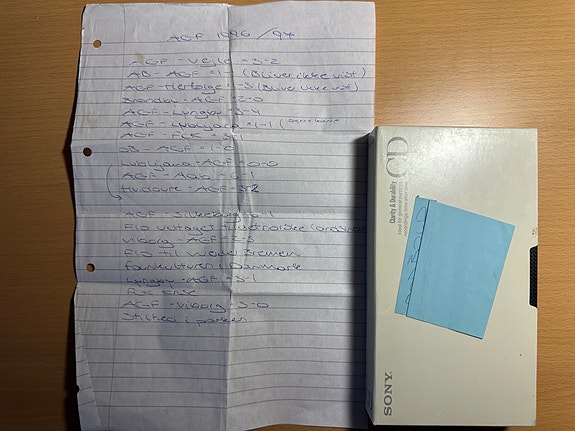 AGF 1996/97
AGF - Vejle = 3-2
AB - AGF = 1-1 (Bliver ikke vist)
AGF - Herfølge = (Bliver ikke vist)
Brøndby - AGF = 2-0
AGF - Lyngby = 3-4
AGF - Lublijana = 1-1 (
AGF - FCK = 3-1
OB - AGF = 1-0
Lublijana - AGF = 0-0
AGF - AaB = 0-1
Hvidovre - AGF = 3-2
AGF - Silkeborg = -1
Flo udtaget til det norske landshold
Viborg - AGF =
Flo til Werder Bremen
i Danmark
Lyngby - AGF = 3-1
AGF - Viborg = 3-0
Stilhed i parken
Clarity & Durability
CD
SONY